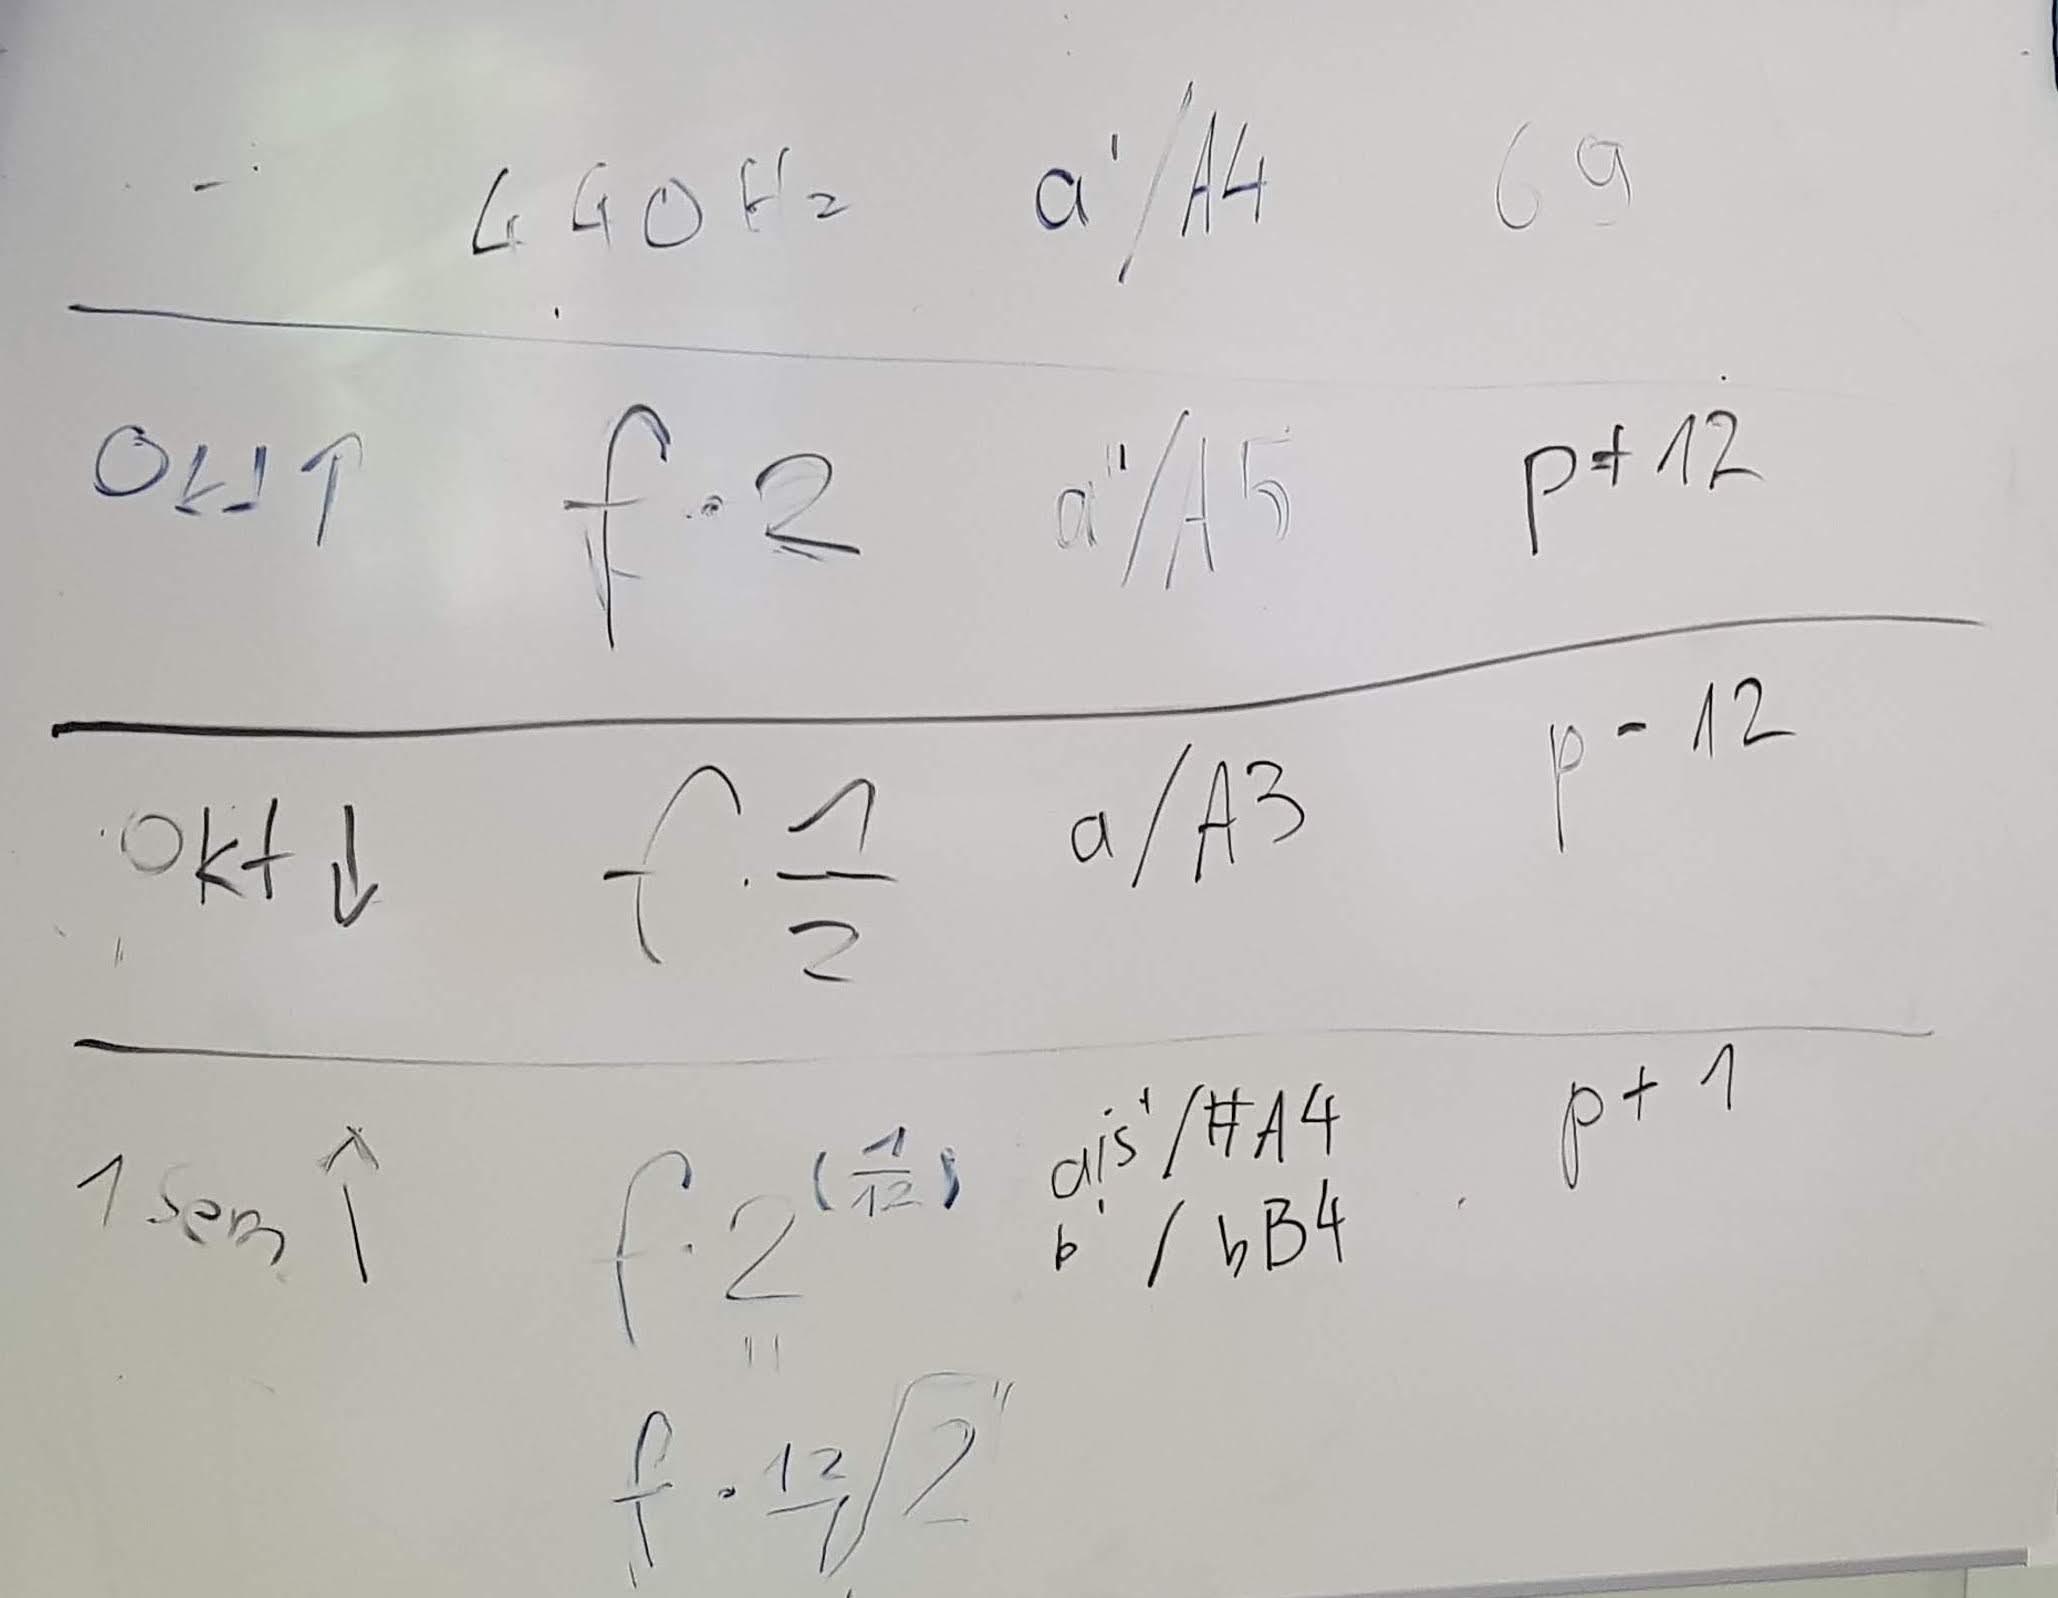 440Hz a'/A4 69
Okt↑ f·2 a''/A5 p+12
Okt↓ f·1/2 a/A3 p-12
1 Sem↑ f·2^(1/12) ais'/#A4 p+1
b'/bB4
=
f·¹²√2